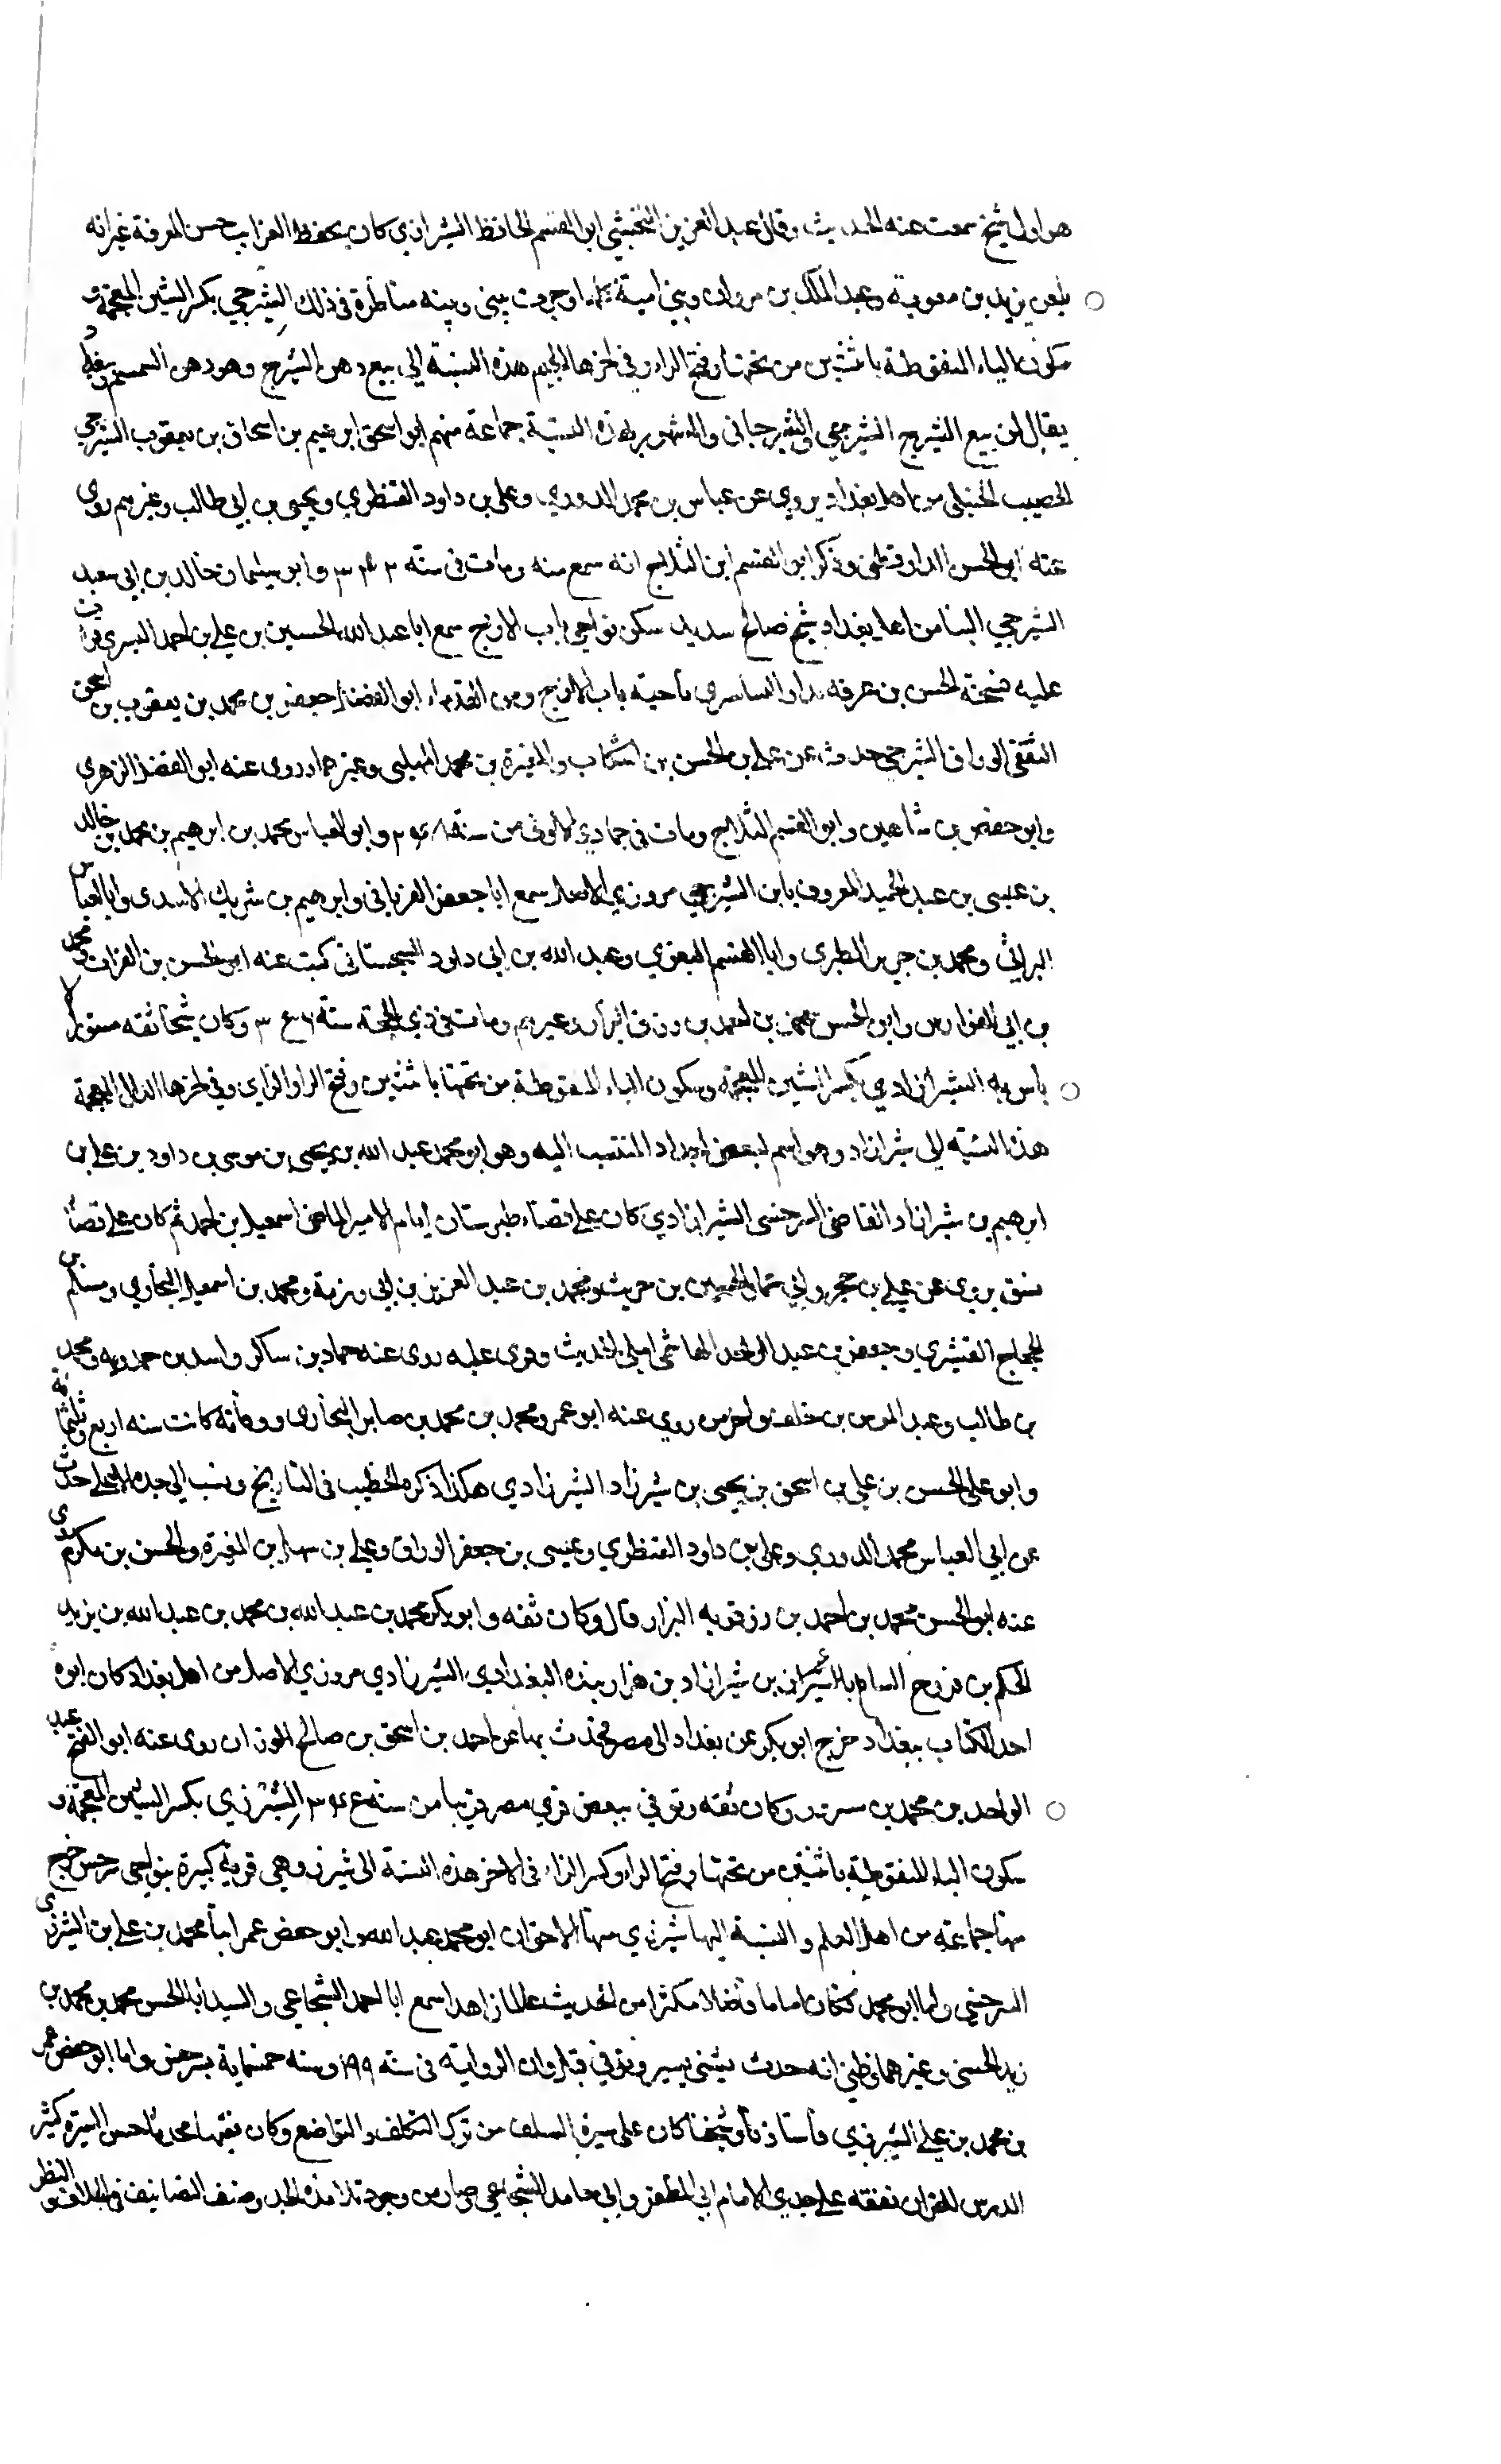 هو اول شيخ سمعت عنه الحديث وقال عبد العزيز النخشبي ابو القسم الحافظ الشيرازي كان يحفظ الغرايب حسن المعرفة غير انه
يلعن يزيد بن معوية وعبد الملك بن مروان وبني امية كلها وجرت بيني وبينه مناظرة في ذلك الشيرجي بكسر الشين المعجمة و
سكون الياء المنقوطة باثنتين من تحتها وفتح الراء وفي اخرها الجيم هذه النسبة الي بيع دهن الشيرج وهو دهن السمسم وببغداد
يقال لمن يبيع الشيرج الشيرجي والشيرجاني والمشهور بهذه النسبة جماعة منهم ابو اسحق ابرهيم بن اسحاق بن يعقوب الشيرجي
الخصيب الحنبلي من اهل بغداد يروي عن عباس بن محمد الدوري وعلي بن داود القنطري ويحيى بن ابي طالب وغيرهم روى
عنه ابو الحسن الدارقطني وذكر ابو القسم ابن الثلاج انه سمع منه ومات في سنة وابو سليمان خالد بن ابي سعيد
الشيرجي البنا من اهل بغداد شيخ صالح سديد سكن نواحي باب الازج سمع ابا عبد الله الحسين بن علي بن احمد البسري قرات
عليه نسخة الحسن بن عرفه بناحية باب الازج ومن القدماء ابو الفضل جعفر بن محمد بن يعقوب بن اسحق
الثقفي الوراق الشيرجي حدث عن علي بن الحسن بن اشكاب والمغيرة بن محمد المهلبي وغيرهما روى عنه ابو الفضل الزهري
وابو حفص بن شاهين وابو القسم الثلاج ومات في جمادي الاولى من سنة وابو العباس محمد بن ابرهيم بن محمد بن خالد
بن عيسى بن عبد الحميد المعروف بابن الشيرجي مروزي الاصل سمع ابا جعفر الفريابي وابرهيم بن شريك الاسدى وابا العباس
البراثي ومحمد بن جرير الطبرى وابا القسم البغوي وعبد الله بن ابي داود السجستاني كتب عنه ابو الحسن بن الفرات ومحمد
بن ابي الفوارس وابو الحسن محمد بن احمد بن رزق البزار وغيرهم ومات في ذي الحجة سنة وكان شيخا ثقه مستورا لا
باس به الشيرازادي بكسر الشين المعجمة وسكون الياء المنقوطة من تحتها باثنتين وفتح الراء والزاي وفي اخرها الدال المهملة
هذه النسبة الي شيرازاد وهو اسم لبعض اجداد المنتسب اليه وهو ابو محمد عبد الله بن يحيى بن موسى بن داود بن علي بن
ابرهيم بن شيرازاد القاضي السرخسي الشيرازادي كان على قضاء طبرستان ايام الامير الماضي اسمعيل بن احمد ثم كان على قضاء
يروي عن علي بن حجر وابي عمار الحسين بن حريث ومحمد بن عبد العزيز بن ابي رزمة ومحمد بن اسمعيل البخاري ومسلم بن
الحجاج القشيري وجعفر بن عبد الواحد الهاشمي املى الحديث وقرى عليه روى عنه حماد بن شاكر واسد بن حمدويه ومحمد
بن طالب وعبد المومن بن خلف واخرهم روي عنه ابو عمرو محمد بن محمد بن صابر البخاري ووفاته كانت سنه اربع وثلثمائة
وابو علي الحسن بن علي بن اسحق بن يحيى بن شيرزاد الشيرزادي هكذا ذكره الخطيب في التاريخ ونسب الي جده الاعلى حدث
عن ابي العباس محمد الدوري وعلي بن داود القنطري وعيسى بن جعفر الوراق وعلي بن سهل بن المغيرة والحسن بن مكرم روى
عنه ابو الحسن محمد بن احمد بن رزقويه البزار قال وكان ثقه وابو بكر محمد بن عبد الله بن محمد بن عبد الله بن يزيد
الحكم بن فروخ بن شيرازاد بن هزاربنده البغدادي الشيرزادي مروزي الاصل من اهل بغداد كان ابوه
احد الكتاب ببغداد خرج ابو بكر عن بغداد الى مصر فحدث بها عن احمد بن اسحق بن صالح الوزان روى عنه ابو الفتح عبد
الواحد بن محمد بن مسرور وكان ثقه وتوفي ببعض قري مصر قريبا من سنة الشيرزي بكسر الشين المعجمة و
سكون الياء المنقوطة باثنتين من تحتها وفتح الراء وكسر الزاء في الاخر هذه النسبة الى شيرز وهي قرية كبيرة بنواحي سرخس خرج
منها جماعة من اهل العلم والنسبة اليها شيرزي منها الاخوان ابو محمد عبد الله وابو حفص عمر ابنا محمد بن علي بن الشيرزي
السرخسي واما ابو محمد فكان اماما فاضلا مكثرا من الحديث عالما زاهدا سمع ابا احمد الشجاعي والسيد ابا الحسن محمد بن محمد بن
زيد الحسني وغيرهما وظني انه حدث بشيئي يسير وتوفي قبل اوان الرواية في سنة وسنه خمسماية بسرخس واما ابو حفص عمر
بن محمد بن علي الشيرزي فاستاذنا وشيخنا كان على سيرة السلف من ترك التكلف والتواضع وكان فقيها محدثا حسن السيرة كثير
الدرس للقران تفقه على جدي الامام ابي المظفر وابي حامد الشجاعي وصار من وجوه تلامذة الجد وصنف التصانيف في الخلاف والنظر